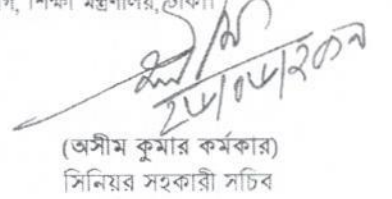 শিক্ষা মন্ত্রণালয়, ঢাকা।
(অসীম কুমার কর্মকার)
সিনিয়র সহকারী সচিব